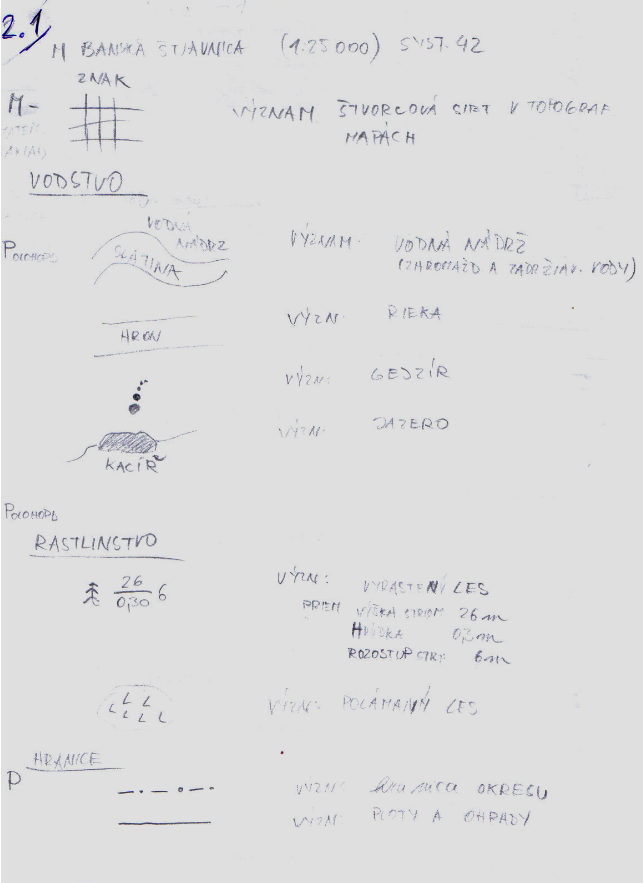 2.1
M BANSKÁ ŠTIAVNICA (1:25 000) SYST. 42
ZNAK
M- VÝZNAM ŠTVORCOVÁ SIEŤ V TOPOGRAF
MAPÁCH
VODSTVO
VODNÁ
NÁDRŽ
SLATINA
POLOHOP. VÝZNAM: VODNÁ NÁDRŽ
(ZHROMAŽD A ZADRŽIAV. VODY)
HRON VÝZN: RIEKA
VÝZN: GEJZÍR
VÝZN: JAZERO
KACÍŘ
POLOHOPIS
RASTLINSTVO
26
0,30 6
VÝZN: VYRASTENÝ LES
PRIEM VÝŠKA STROM 26 m
HRÚBKA 0,3 m
ROZOSTUP STR. 6m
L L L L L L VÝZN: POLÁMANÝ LES
HRANICE
P
VYZN: hranica OKRESU
VÝZN: PLOTY A OHRADY